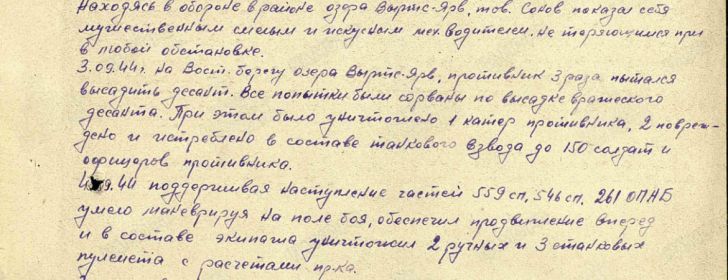 Находясь в обороне в районе озера Выртс-Ярв, тов. Соков показал себя
мужественным смелым и искусным мех. водителем, не теряющимся при
в любой обстановке.
3.09.44г. на Вост. берегу озера Выртс-Ярв, противник 3 раза пытался
высадить десант. Все попытки были сорваны по высадке вражеского
десанта. При этом было уничтожено 1 катер противника, 2 повреж-
дено и истреблено в составе танкового взвода до 150 солдат и
офицеров противника.
09.44 поддерживая наступление частей 559 сп, 546 сп, 261 ОПАБ
умело маневрируя на поле боя, обеспечил продвижение вперед
и в составе экипажа уничтожил 2 ручных и 3 станковых
пулемета с расчетами пр-ка.